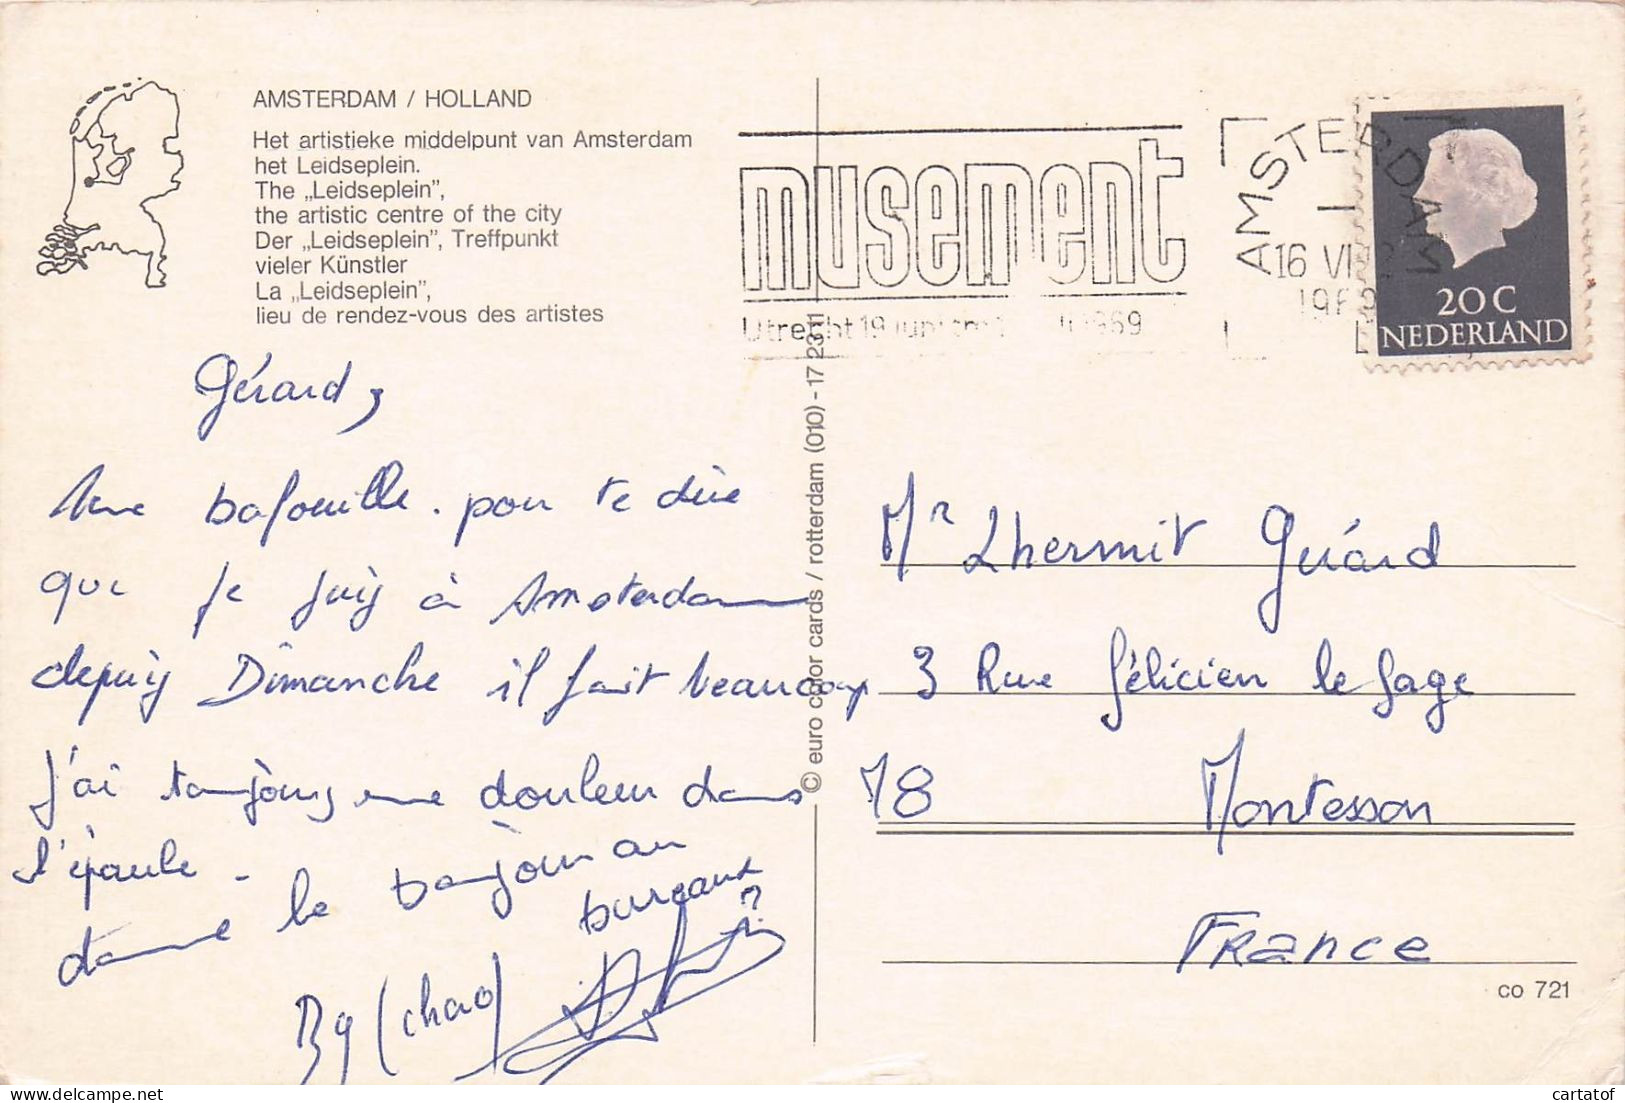 AMSTERDAM / HOLLAND
Het artistieke middelpunt van Amsterdam
het Leidseplein.
The „Leidseplein”,
the artistic centre of the city
Der „Leidseplein”, Treffpunkt
vieler Künstler
La „Leidseplein”,
lieu de rendez-vous des artistes
musement
Utrecht 19 juni 1969
AMSTERDAM
16 VI
1969
20 C
NEDERLAND
Gérard,
Une bafouille. pour te dire
que je suis à Amsterdam
depuis Dimanche il fait beaucoup
J'ai toujours une douleur dans
l'épaule.
donne le bonjour au
bureaux
By (chao)
© euro color cards / rotterdam (010) - 17 23 11
Mr Lhermit Gérard
3 Rue Félicien le Sage
78 Montesson
France
co 721
cartatof